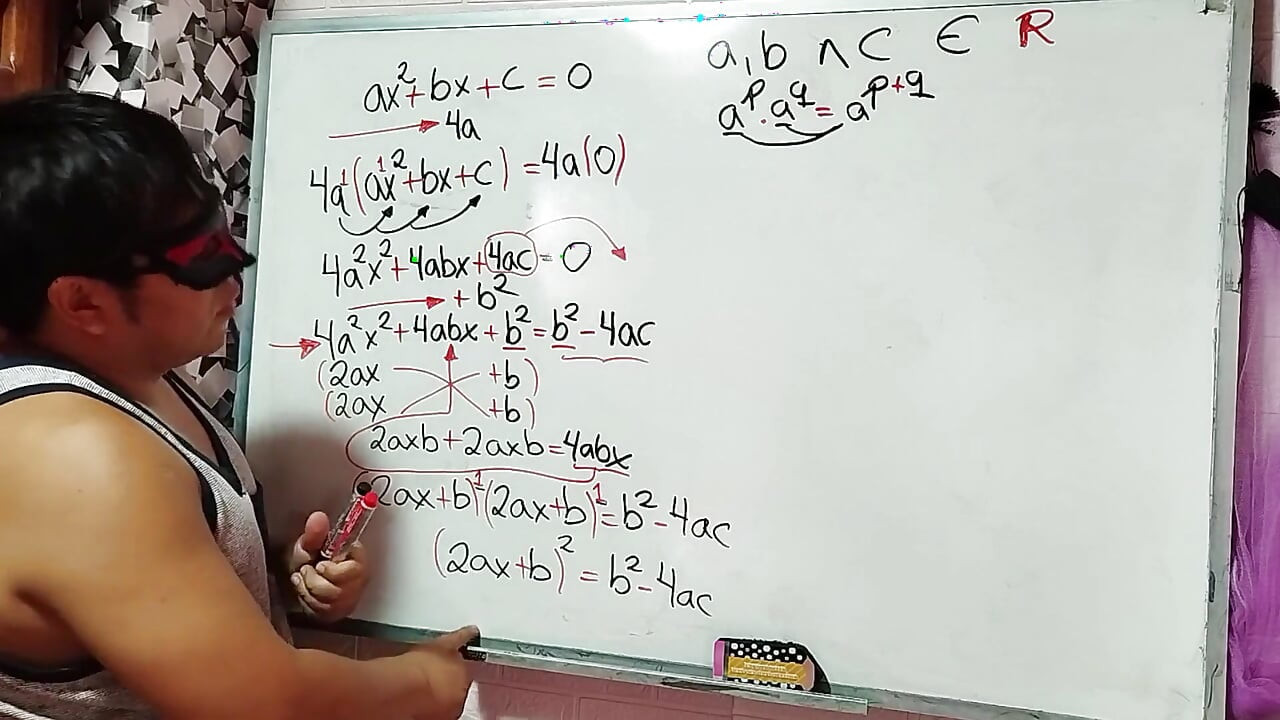 ax²+bx+c=0
4a
4a¹(a¹x²+bx+c)=4a(0)
4a²x²+4abx+4ac=0
+b²
4a²x²+4abx+b²=b²-4ac
(2ax +b)
(2ax +b)
2axb+2axb=4abx
(2ax+b)¹(2ax+b)¹=b²-4ac
(2ax+b)²=b²-4ac
a,b ∧ C ∈ R
aᵖ·a^q=a^p+q